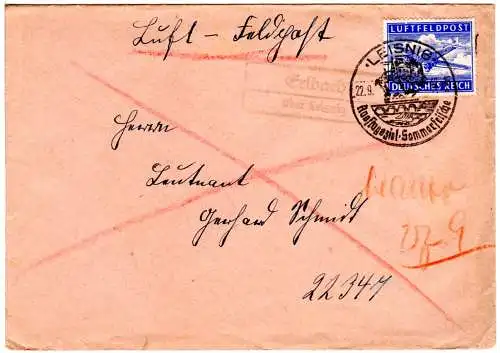 Luft-Feldpost
LUFTFELDPOST
DEUTSCHES REICH
LEISNIG
22.9.
Ausflugsziel · Sommerfrische
über Leisnig
Herrn
Leutnant
Gerhard Schmidt
22347